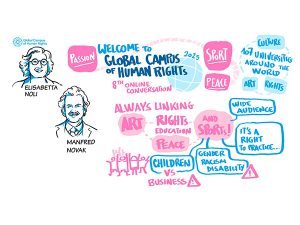 Global Campus
of Human Rights
ELISABETTA
NOLI
MANFRED
NOVAK
PASSION
WELCOME TO
GLOBAL CAMPUS
OF HUMAN RIGHTS
2025
8TH ONLINE
CONVERSATION
SPORT
PEACE
CULTURE
107 UNIVERSITIES
AROUND THE
WORLD
ART
RIGHTS
ALWAYS LINKING
ART
RIGHTS
EDUCATION
PEACE
AND
SPORTS!
WIDE
AUDIENCE
IT'S A
RIGHT
TO PRACTICE...
GENDER
RACISM
DISABILITY
CHILDREN
VS
BUSINESS